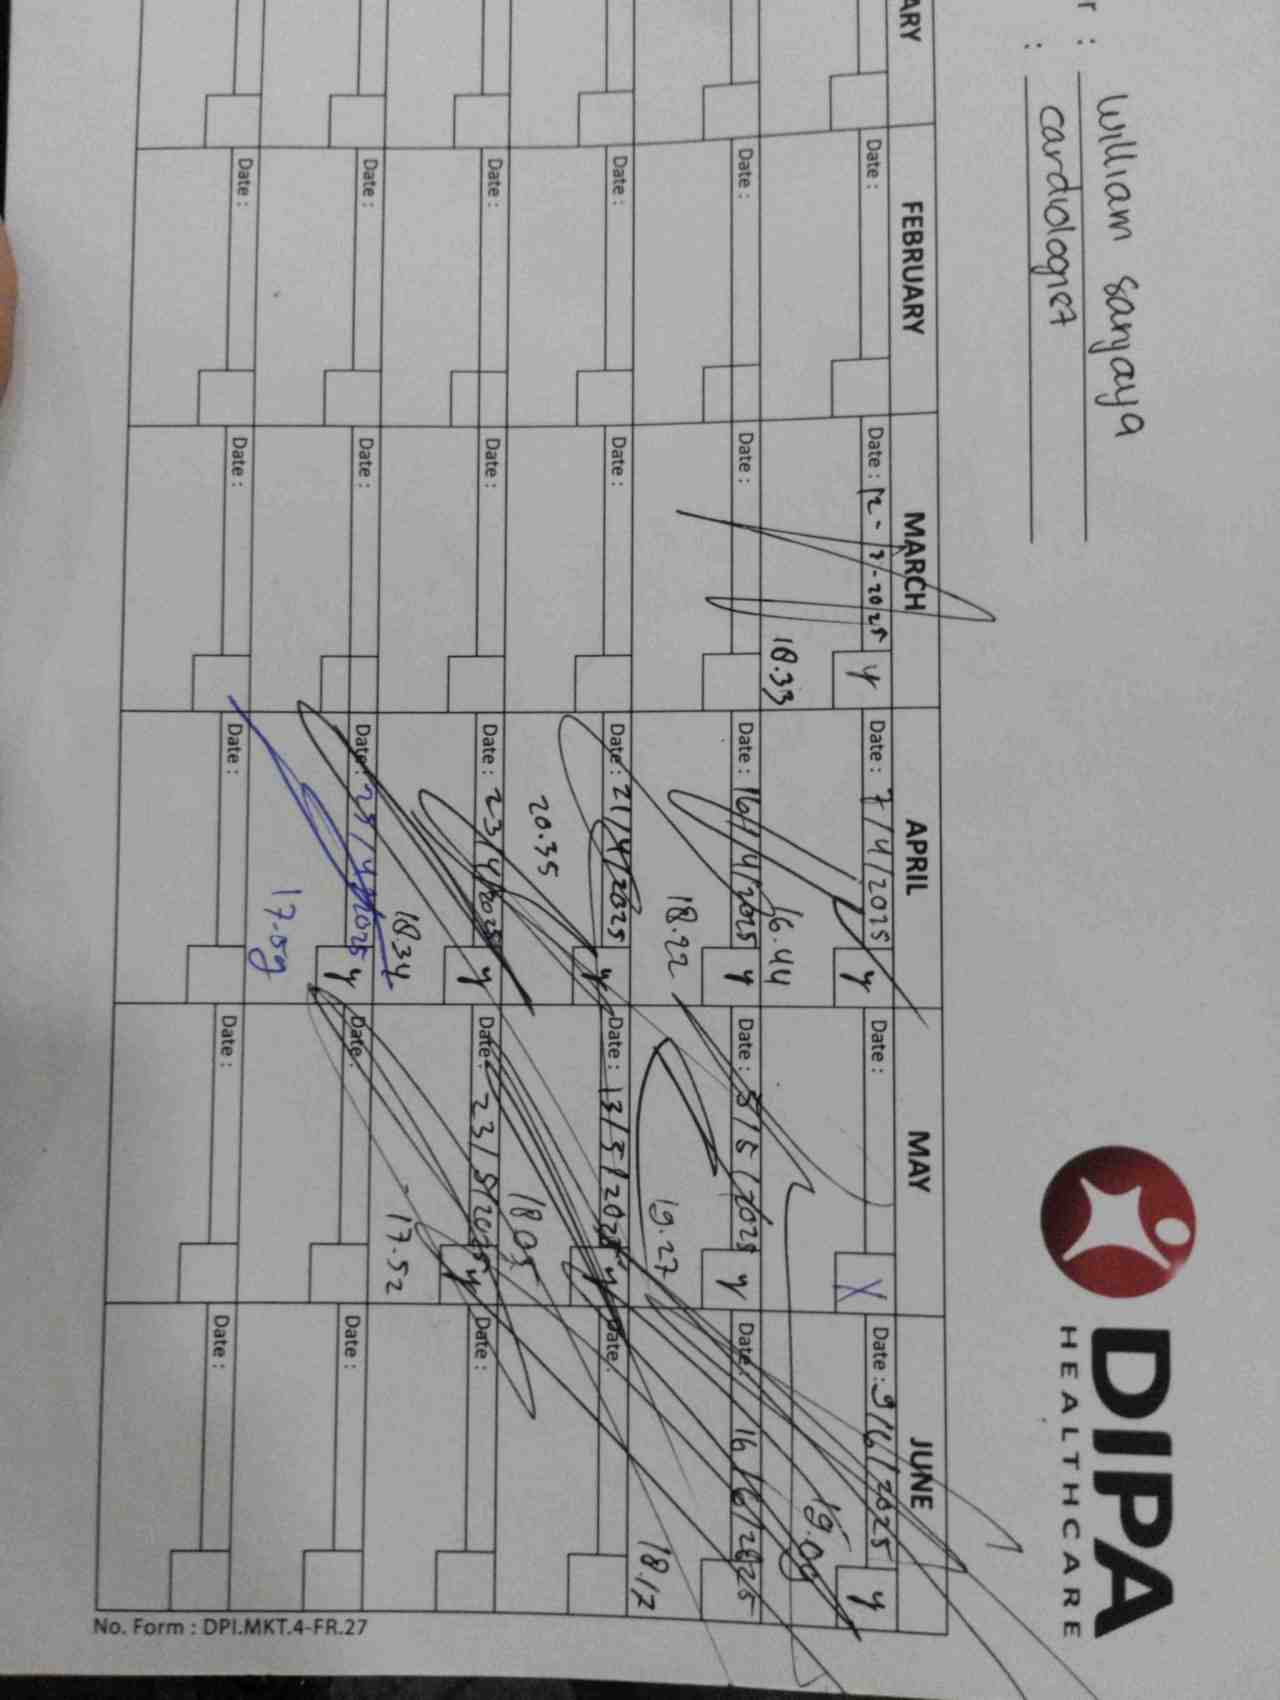 r : William Sanjaya
: cardiologist
DIPA
HEALTHCARE
ARY FEBRUARY MARCH APRIL MAY JUNE
Date : Date : 12-3-2025 y Date : 7/4/2025 y Date : X Date : 9/6/2025 y
18.33 16.44 19.09
Date : Date : Date : 16/4/2025 y Date : 5/5/2025 y Date : 16/6/2025
18.22 19.27 18.12
Date : Date : Date : 21/4/2025 y Date : 13/5/2025 y Date :
20.35 18.05
Date : Date : Date : 23/4/2025 y Date : 23/5/2025 y Date :
18.34 17.52
Date : Date : Date : 25/4/2025 y Date : Date :
17.09
Date : Date : Date : Date : Date :
No. Form : DPI.MKT.4-FR.27